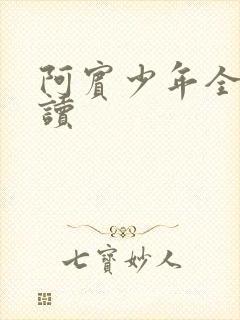 阿賓少年全
讀
七寶妙人